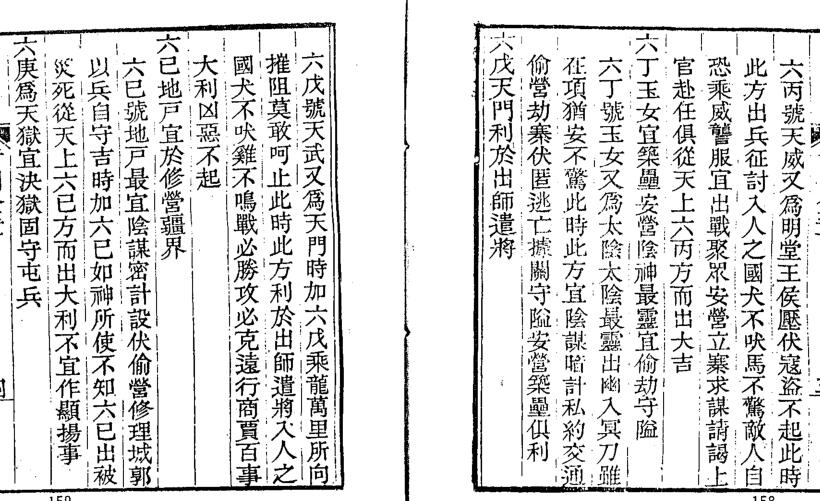 六丙號天威又爲明堂王侯壓伏寇盜不起此時
此方出兵征討入人之國犬不吠馬不驚敵人自
恐乘威讋服宜出戰聚眾安營立寨求謀請謁上
官赴任俱從天上六丙方而出大吉
六丁玉女宜築壘安營陰神最靈宜偷劫守隘
六丁號玉女又爲太陰太陰最靈出幽入冥刀雖
在項猶安不驚此時此方宜陰謀暗計私約交通
偷營劫寨伏匿逃亡據關守隘安營築壘俱利
六戊天門利於出師遣將
六戊號天武又爲天門時加六戊乘龍萬里所向
摧阻莫敢呵止此時此方利於出師遣將入人之
國犬不吠雞不鳴戰必勝攻必克遠行商賈百事
大利凶惡不起
六己地戸宜於修營疆界
六己號地戸最宜陰謀密計設伏偷營修理城郭
以兵自守吉時加六己如神所使不知六己出被
災死從天上六己方而出大利不宜作顯揚事
六庚爲天獄宜決獄固守屯兵
158
159